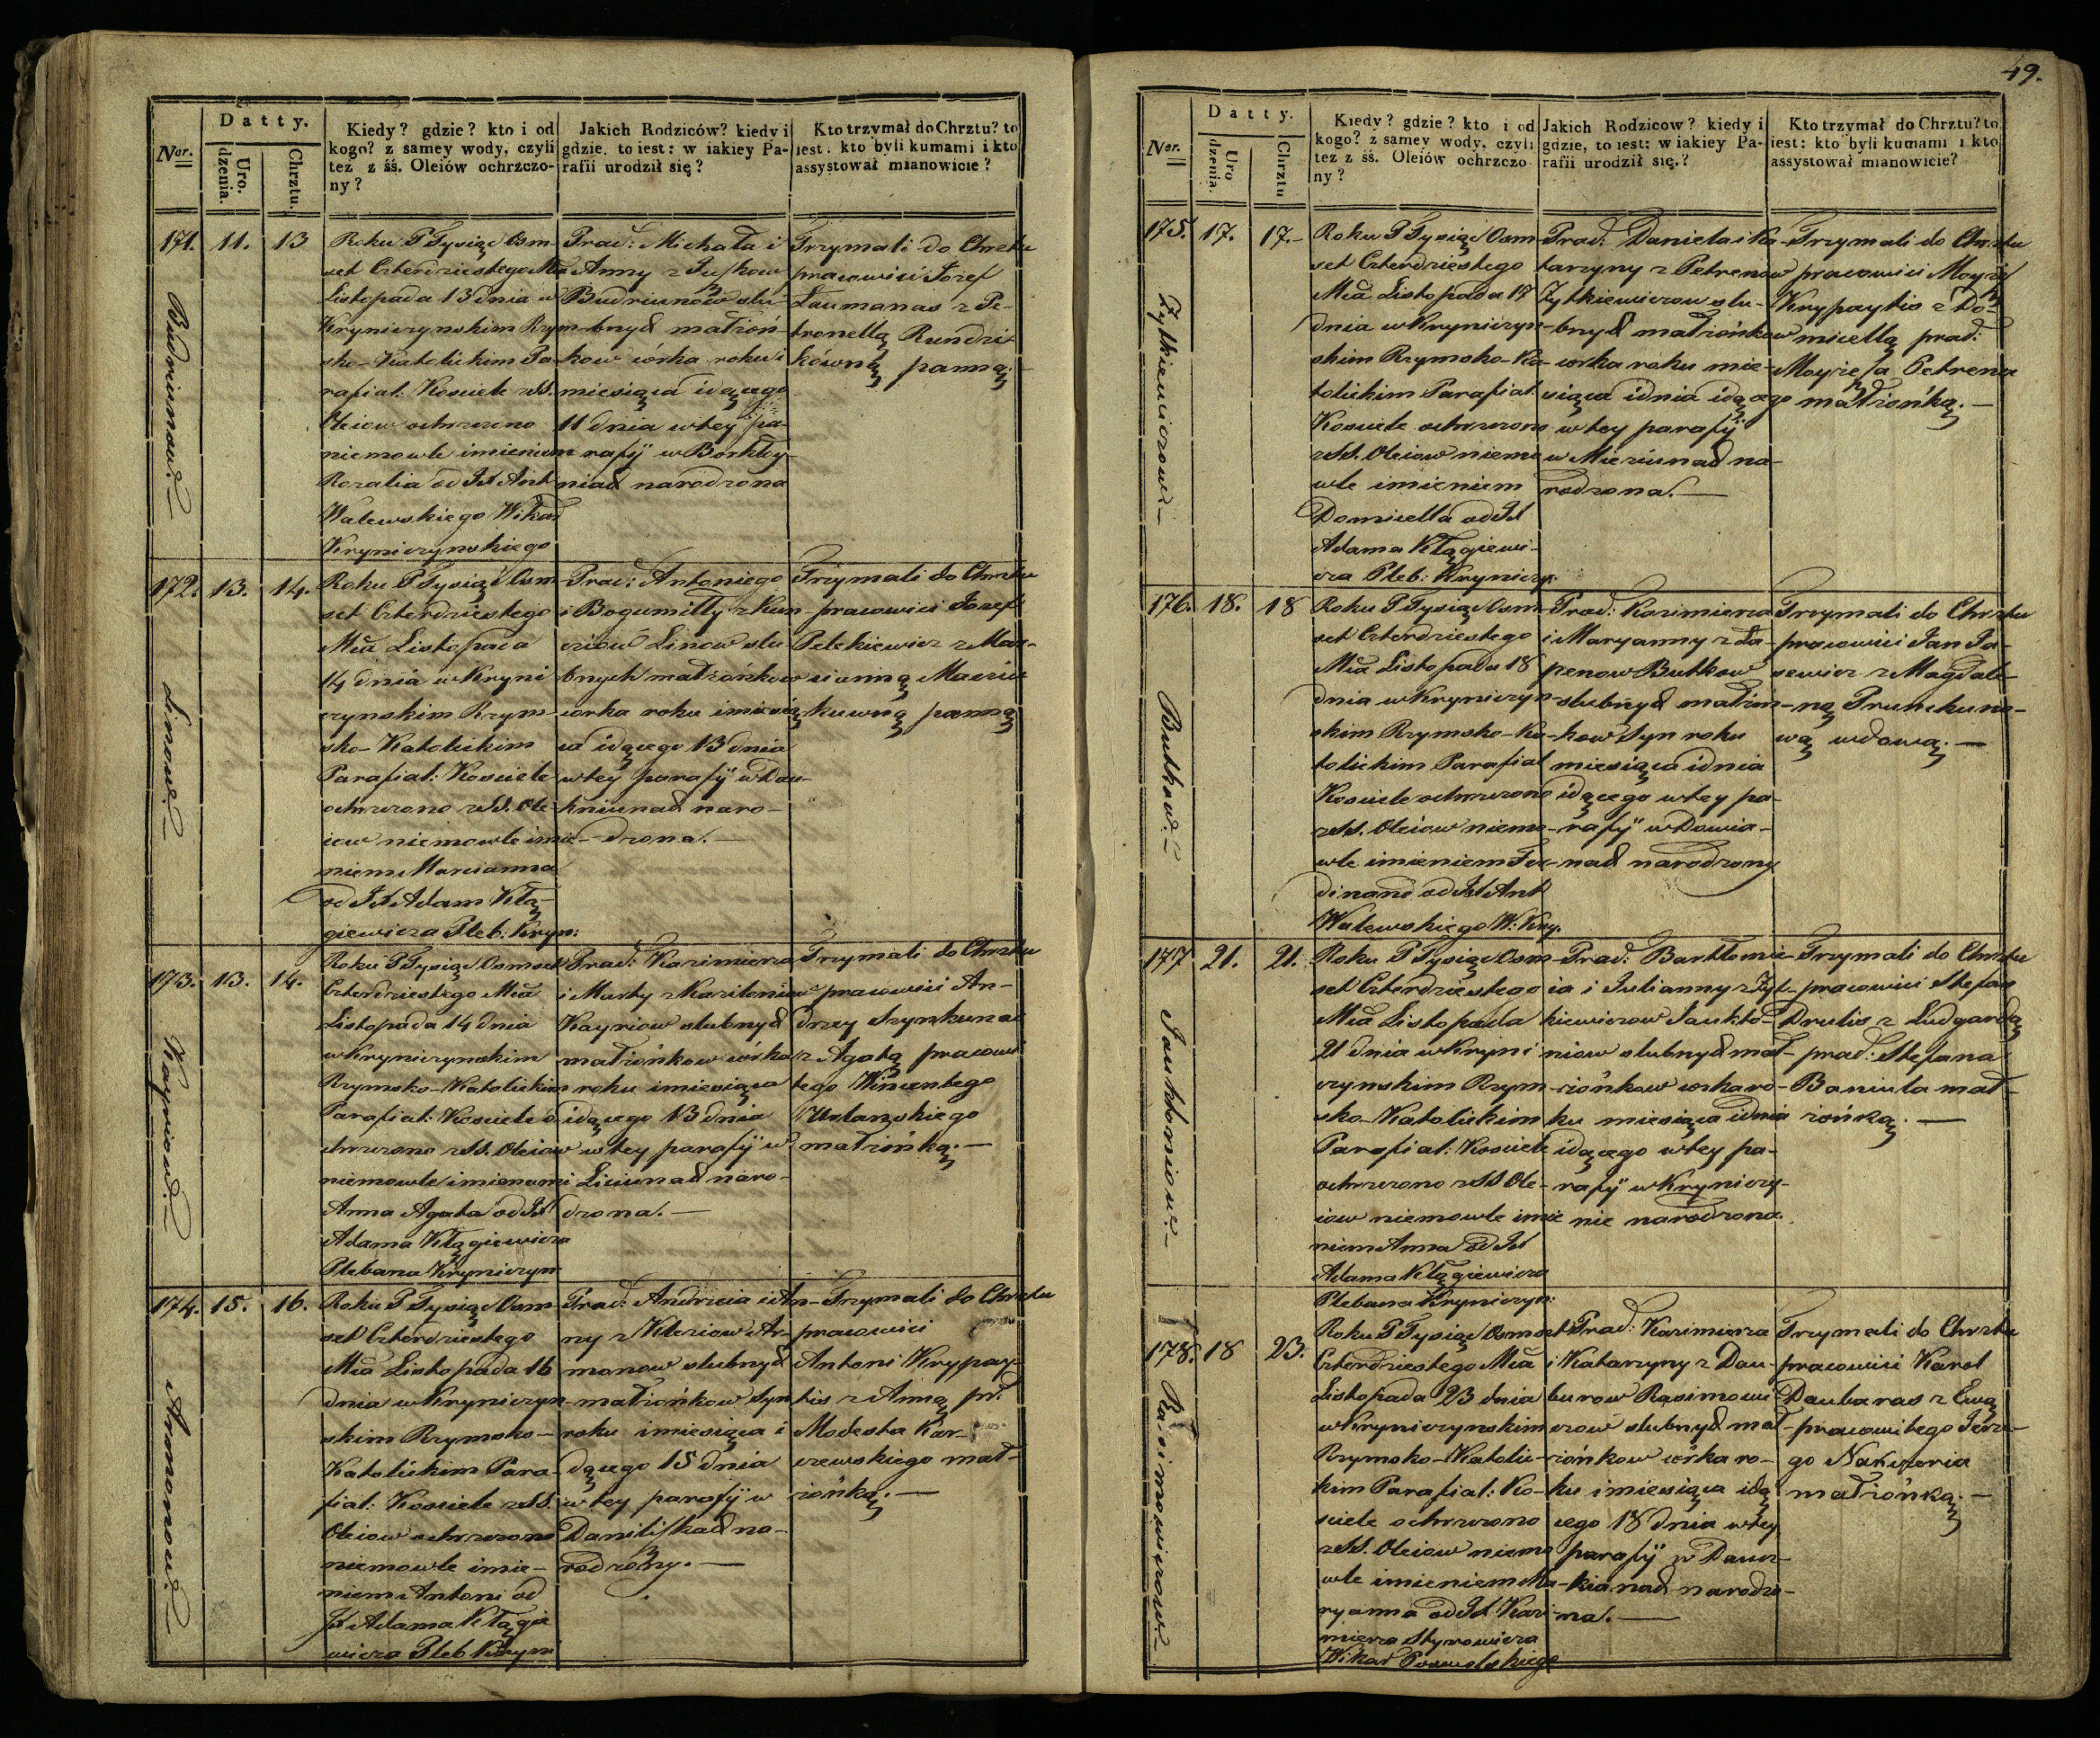 49.
Nor.
Datty.
Uro.
dzenia.
Chrztu.
Kiedy? gdzie? kto i od
kogo? z samey wody, czyli
też z śś. Oleiów ochrzczo-
ny?
Jakich Rodziców? kiedy i
gdzie. to iest: w iakiey Pa-
rafii urodził się?
Kto trzymał do Chrztu? to
iest: kto byli kumami i kto
assystował mianowicie?
171.
11.
13
Budriunow.
Roku P Tysiąc Osm-
set Czterdziestego Mca
Listopada 13 dnia w
Kryniczynskim Rzym-
sko-Katolickim Pa-
rafial. Kosciele z SS.
Oleiow ochrzczono
niemowle imieniem
Rozalia od JX Ant
Walewskiego Wikar
Kryniczynskiego
Prac: Michała i
Anny z Juszkow
Budriunow slu-
bnych małżoń-
kow córka roku i
miesiąca idącego
11 dnia w tey pa-
rafij w Borkły
niach narodzona
Trzymali do Chrztu
pracowici Jozef
Laumanas z Pe-
tronellą Rundzi
kówną panną.
172.
13.
14.
Linow.
Roku P Tysiąc Osm
set Czterdziestego
Mca Listopada
14 dnia w Kryni
czynskim Rzym-
sko-Katolickim
Parafial: Kosciele
ochrzczono z SS. Ole-
iow niemowle imie-
niem Marcianna
od JX Adam Kłą-
giewicza Pleb: Kryn:
Prac: Antoniego
i Bogumilly z Kun-
ciow Linow slu
bnych małżońkow
córka roku i miesią
ca idącego 13 dnia
w tey parafij w Dau-
kniunach naro-
dzona.
Trzymali do Chrztu
pracowici Jozef
Petkiewicz z Mar-
cianną Maciu
kuwną panną
173.
13.
14.
Kayriow.
Roku P Tysiąc Osmset
Czterdziestego Mca
Listopada 14 dnia
w Kryniczynskim
Rzymsko-Katolickim
Parafial: Kosciele o-
chrzczono z SS. Oleiow
niemowle imionami
Anna Agata od JX
Adama Kłągiewicza
Plebana Kryniczyn
Prac: Kazimierza
i Marty z Kaziloniow
Kayriow slubnych
małżońkow córka
roku i miesiąca
idącego 13 dnia
w tey parafij w
Liciunach naro-
dzona.
Trzymali do Chrztu
pracowici An-
drzey Szynkunas
z Agatą pracowi
tego Wincentego
Uslanskiego
małżońką.
174.
15.
16.
Aromonow.
Roku P Tysiąc Osm-
set Czterdziestego
Mca Listopada 16
dnia w Krynicyn-
skim Rzymsko-
Katolickim Para-
fial: Kosciele z SS.
Oleiow ochrzczono
niemowle imie-
niem Antoni od
JX Adama Kłągie
wicza Pleb Kryni
Prac: Andrzeia i An-
ny z Kleziow Ar-
monow slubnych
małżońkow Syn
roku i miesiąca i
dącego 15 dnia
w tey parafij w
Daniliszkach na-
rodzony.
Trzymali do Chrztu
pracowici
Antoni Krypay-
tis z Anną pr.
Modesta Kar-
czewskiego mał-
żońką.
Nor.
Datty.
Uro
dzenia.
Chrztu
Kiedy? gdzie? kto i od
kogo? z samey wody, czyli
też z śś. Oleiów ochrzczo
ny?
Jakich Rodzicow? kiedy i
gdzie, to iest: w iakiey Pa-
rafii urodził się.?
Kto trzymał do Chrztu? to
iest: kto byli kumami i kto
assystował mianowicie?
175.
17.
17.
Zytkiewiczow
Roku P Tysiąc Osm
set Czterdziestego
Mca Listopada 17
dnia w Krynicyn-
skim Rzymsko-Ka-
tolickim Parafial
Kosciele ochrzczono
z SS. Oleiow niemo
wle imieniem
Domicella od JX
Adama Kłągiewi-
cza Pleb: Kryniczy:
Prac: Daniela i Ka-
tarzyny z Petrenow
Zytkiewiczow slu-
bnych małżońkow
corka roku mie-
siąca i dnia idącego
w tey parafij
w Mieziunach na-
rodzona.
Trzymali do Chrztu
pracowici Moyzis
Krypaytis z Do-
micellą prac:
Moyzesza Petrena
małżońką.
176.
18.
18
Butkow.
Roku P Tysiąc Osm
set Czterdziestego
Mca Listopada 18
dnia w Krynicyn-
skim Rzymsko-Ka-
tolickim Parafial
Kosciele ochrzczono
z SS. Oleiow niemo-
wle imieniem Fer-
dinand od JX Ant
Walewskiego W: Kry.
Prac: Kazimierza
i Maryanny z Ła-
penow Butkow
slubnych małżoń-
kow Syn roku
miesiąca i dnia
idącego w tey pa-
rafij w Dowia-
nach narodzony
Trzymali do Chrztu
pracowici Jan Ja-
sewicz z Magdale-
ną Trunckuno-
wą wdową.
177
21.
21.
Jauktoniow.
Roku P Tysiąc Osm-
set Czterdziestego
Mca Listopada
21 dnia w Kryni
czynskim Rzym-
sko-Katolickim
Parafial: Kosciele
ochrzczono z SS Ole-
iow niemowle imie
niem Anna od JX
Adama Kłągiewicza
Plebana Krynicyn:
Prac: Bartłomie-
ia i Julianny z Zyt-
kiewiczow Jaukto-
niow slubnych mał-
żońkow corka ro-
ku miesiąca i dnia
idącego w tey pa-
rafij w Kryniczy-
nie narodzona.
Trzymali do Chrztu
pracowici Stefan
Drulis z Ludgardą
prac: Stefana
Baniula mał-
żońką.
178.
18
23.
Rasimowiczow.
Roku P Tysiąc Osmset
Czterdziestego Mca
Listopada 23 dnia
w Krynicynskim
Rzymsko-Katolic-
kim Parafial: Ko-
sciele ochrzczono
z SS. Oleiow niemo
wle imieniem Ma-
ryanna od JX Kazi
mierza Szyrowicza
Wikar Powolskiego
Prac: Kazimierza
i Katarzyny z Dau-
burow Rasimowi-
czow slubnych mał-
żońkow córka ro-
ku i miesiąca idą
cego 18 dnia w tey
parafij w Dauk-
kianach narodzo-
na.
Trzymali do Chrztu
pracowici Karol
Daubaras z Ewą
pracowitego Jerze-
go Narwenia
małżonką.